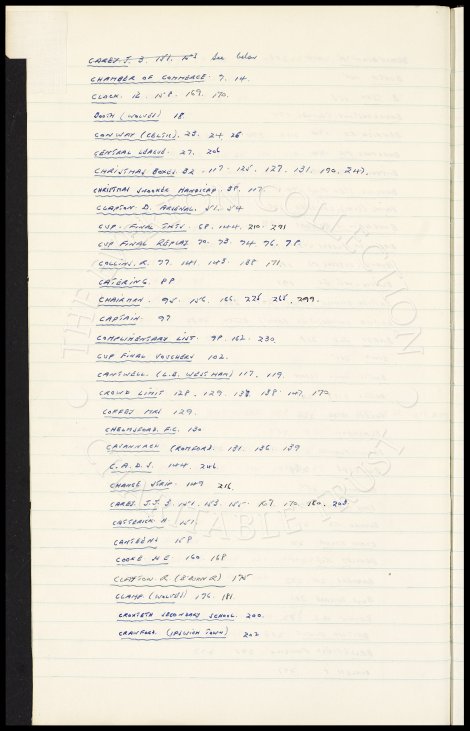 CAREY J. J. 151. 153 See below
CHAMBER OF COMMERCE. 7. 14.
CLOCK. 12. 158. 169. 170.
BOOTH (WOLVES) 18
CONWAY (CELTIC). 23. 24 25
CENTRAL LEAGUE. 27. 206
CHRISTMAS BOXES. 32. 117. 125. 127. 131. 190. 243.
CHRISTMAS SNOOKER HANDICAP. 38. 117.
CLAPTON. D. ARSENAL. 51. 54
CUP. FINAL TKTS. 68. 144. 210. 291
CUP FINAL REPLAY 70. 73. 74. 76. 78.
COLLINS. R. 77. 141 143. 188 171.
CATERING. 88
CHAIRMAN. 95. 156. 166. 226. 268. 299.
CAPTAIN. 97
COMPLIMENTARY LIST. 98. 162. 230.
CUP FINAL VOUCHERS 102.
CANTWELL. (L.E. WEST HAM) 117. 119.
CROWD LIMIT 128. 129. 138 138 147. 170
COFFEY MRS 129.
CHELMSFORD. F.C. 130
CAVANNAGH (ROMFORD. 131. 136. 139
C.A.D.S. 144. 246.
CHANGE STRIP. 149 216.
CAREY. J.J. 3. 151. 153. 155. 167. 170. 180. 203.
CATTERICK. H. 151
CANTEENS 158
COOKE H.E. 160 168
CLAYTON. R. (B'BURN R) 175
CLAMP. (WOLVES) 176. 181.
CROXTETH SECONDARY SCHOOL. 200.
CRAWFORD. (IPSWICH TOWN) 202
THE
COLLECTION
CHARITABLE TRUST